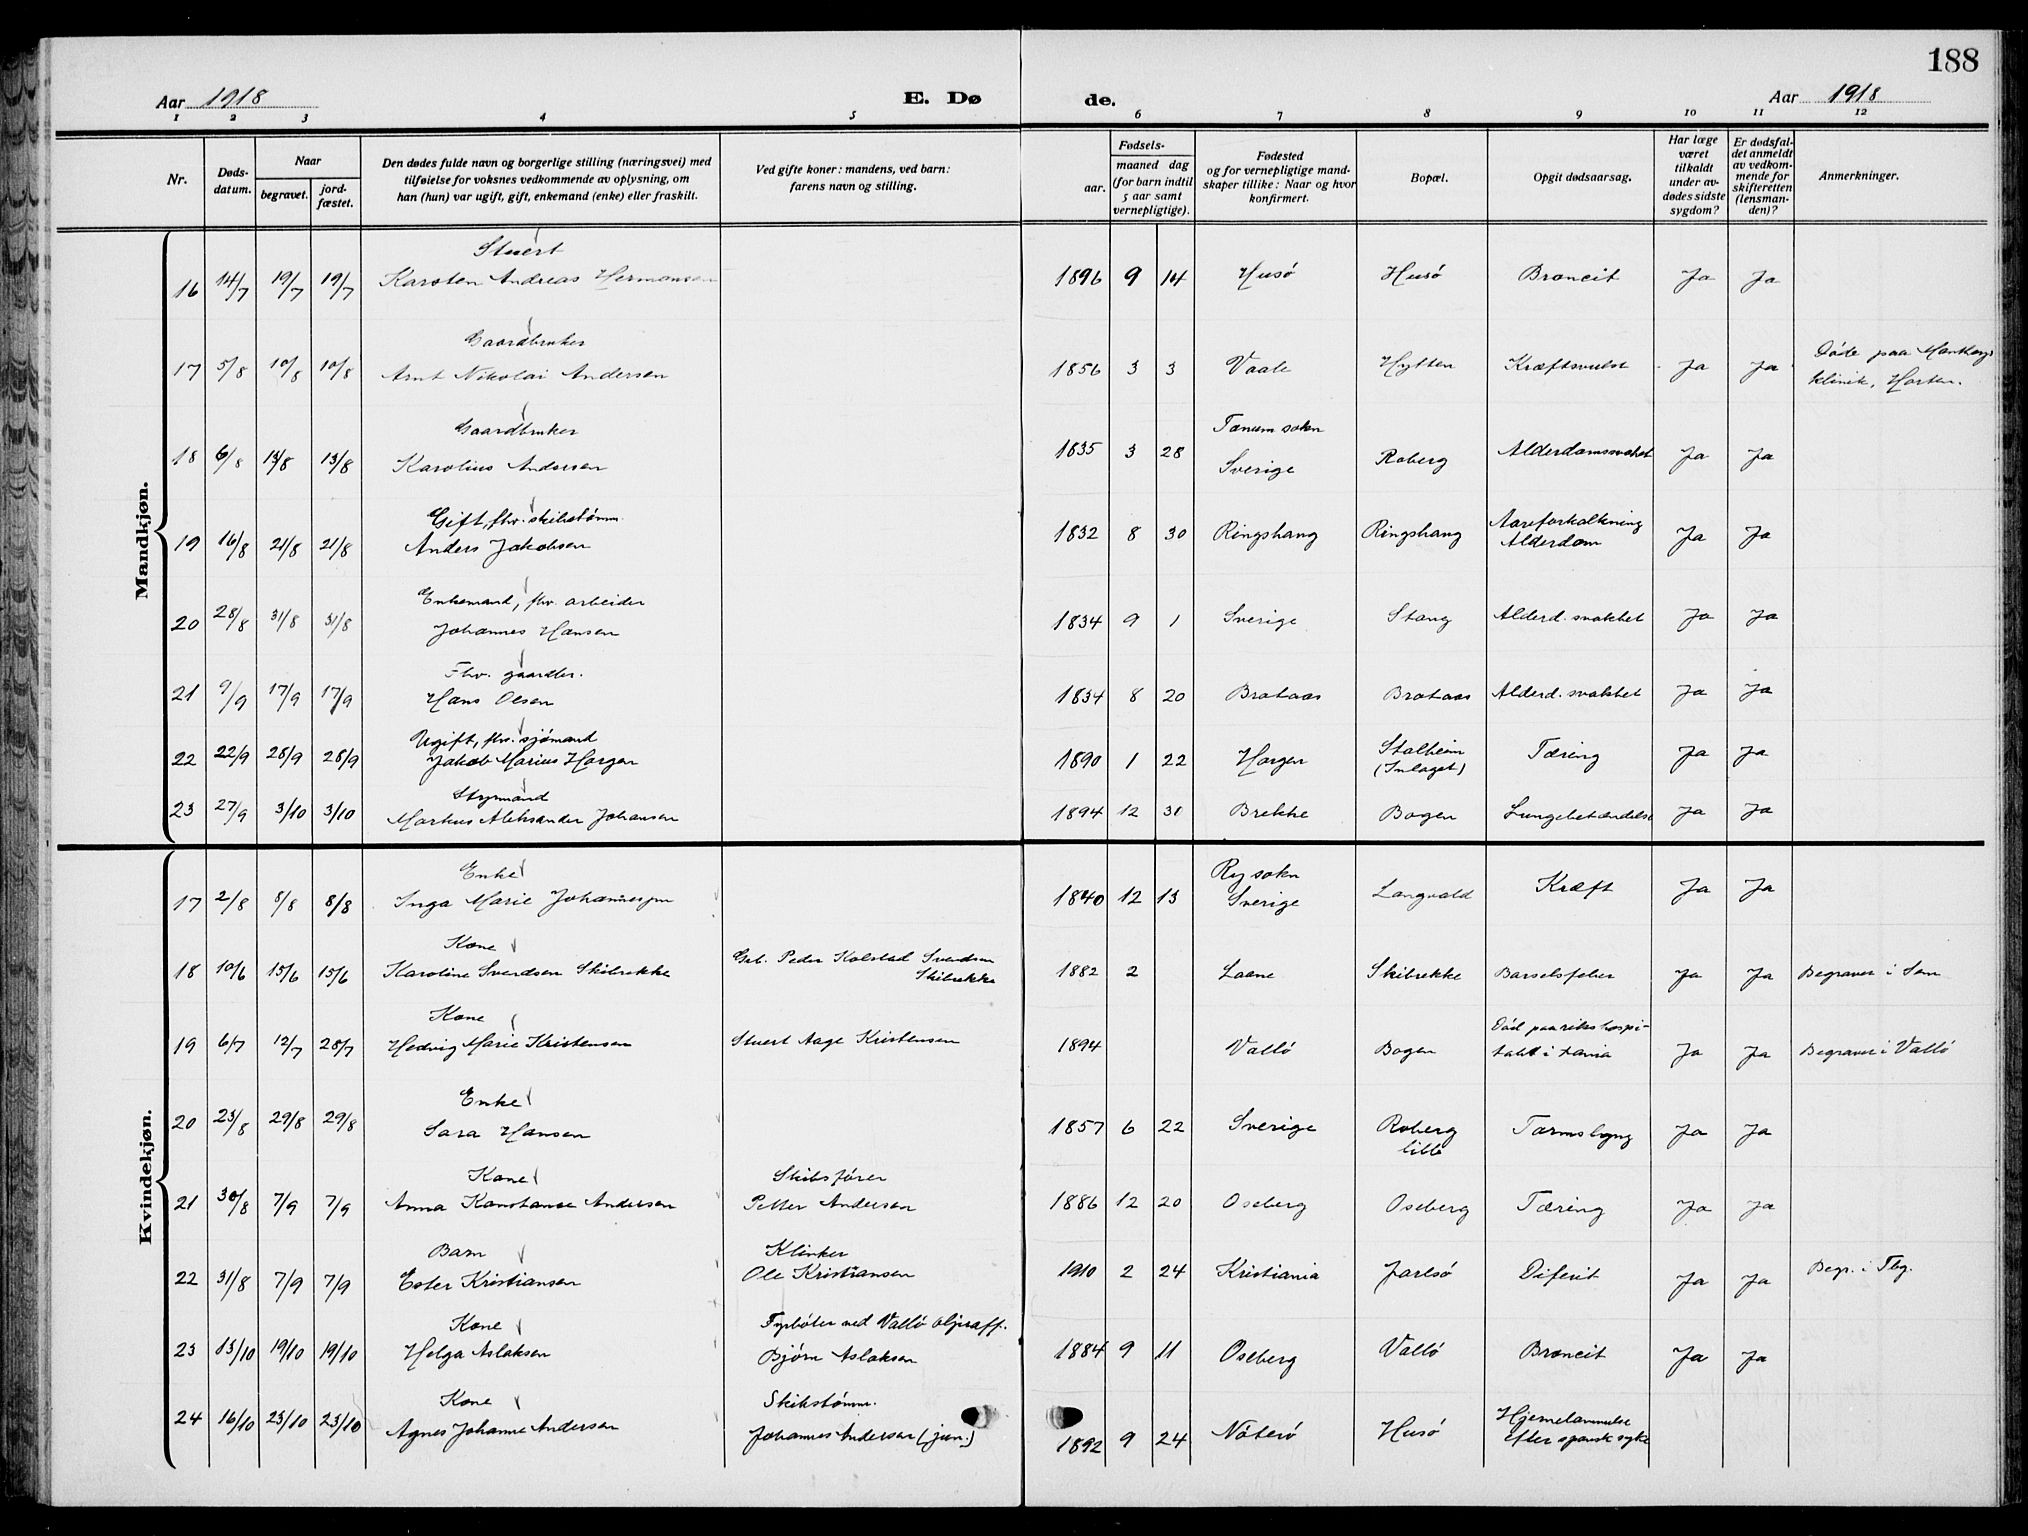 188
Aar 1918 E. Dø de. Aar 1918
1 2 3 4 5 6 7 8 9 10 11 12
Nr.
Døds-
datum.
Naar
begravet.
jord-
fæstet.
Den dødes fulde navn og borgerlige stilling (næringsvei) med
tilføielse for voksnes vedkommende av oplysning, om
han (hun) var ugift, gift, enkemand (enke) eller fraskilt.
Ved gifte koner: mandens, ved barn:
farens navn og stilling.
Fødsels-
aar.
maaned dag
(for barn indtil
5 aar samt
vernepligtige).
Fødested
og for vernepligtige mand-
skaper tillike: Naar og hvor
konfirmert.
Bopæl.
Opgit dødsaarsag.
Har læge
været
tilkaldt
under av-
dødes sidste
sygdom?
Er dødsfal-
det anmeldt
av vedkom-
mende for
skifteretten
(lensman-
den)?
Anmerkninger.
Mandkjøn.
Stuert
16 14/7 19/7 19/7 Karsten Andreas Hermansen 1896 9 14 Husö Husö Broncit Ja Ja
Gaardbruker
17 5/8 10/8 10/8 Arnt Nikolai Andersen 1856 3 3 Vaale Hytten Kræftsvulst Ja Ja Döde paa
klinik, Horten.
Gaardbruker
18 6/8 13/8 13/8 Karolius Andersen 1835 3 28 Tanum sokn
Sverige Roberg Alderdomssvakhet Ja Ja
Gift, fhv. skibstömm.
19 16/8 21/8 21/8 Anders Jakobsen 1832 8 30 Ringshaug Ringshaug Aareforkalkning
Alderdom Ja Ja
Enkemand, fhv. arbeider
20 28/8 31/8 31/8 Johannes Hansen 1834 9 1 Sverige Stang Alderd. svakhet Ja Ja
Fhv. gaardbr.
21 9/9 17/9 17/9 Hans Olsen 1834 8 20 Brataas Brataas Alderd. svakhet Ja Ja
Ugift, fhv. sjömand
22 22/9 28/9 28/9 Jakob Marius Horgen 1890 1 22 Horgen Stalheim
(Inlaget) Tæring Ja Ja
Styrmand
23 27/9 3/10 3/10 Markus Aleksander Johansen 1894 12 31 Brekke Bogen Lungebetændelse Ja Ja
Kvindekjøn.
Enke
17 2/8 8/8 8/8 Inga Marie Johannessen 1840 12 13 Ry sokn
Sverige Langvald Kræft Ja Ja
Kone
18 10/6 15/6 15/6 Karoline Svendsen Skibrekke Grb. Peder Kolstad Svendsen
Skibrekke 1882 2 Laane Skibrekke Barselsfeber Ja Ja Begraves i Sem
Kone
19 6/7 12/7 28/7 Hedvig Marie Kristensen Stuert Aage Kristensen 1894 Vallö Bogen Död paa rikshospi-
talet i Ja Ja Begraves i Vallö
Enke
20 23/8 29/8 29/8 Sara Hansen 1857 6 22 Sverige Roberg
lille Tarmslyng Ja Ja
Kone
21 30/8 7/9 7/9 Anna Konstanse Andersen Skibsförer
Petter Andersen 1886 12 20 Oseberg Oseberg Tæring Ja Ja
Barn
22 31/8 7/9 7/9 Ester Kristiansen Klinker
Ole Kristiansen 1910 2 24 Kristiania Jarlsö Diferit Ja Ja Begr. i Tbg.
Kone
23 13/10 19/10 19/10 Helga Aslaksen Fyrböter ved Vallö oljeraff.
Björn Aslaksen 1884 9 11 Oseberg Vallö Broncit Ja Ja
Kone
24 16/10 23/10 23/10 Agnes Johanne Andersen Skibstömm.
Johannes Andersen (jun.) 1892 9 24 Nöterö Husö Hjernelammelse
efter spansk syke